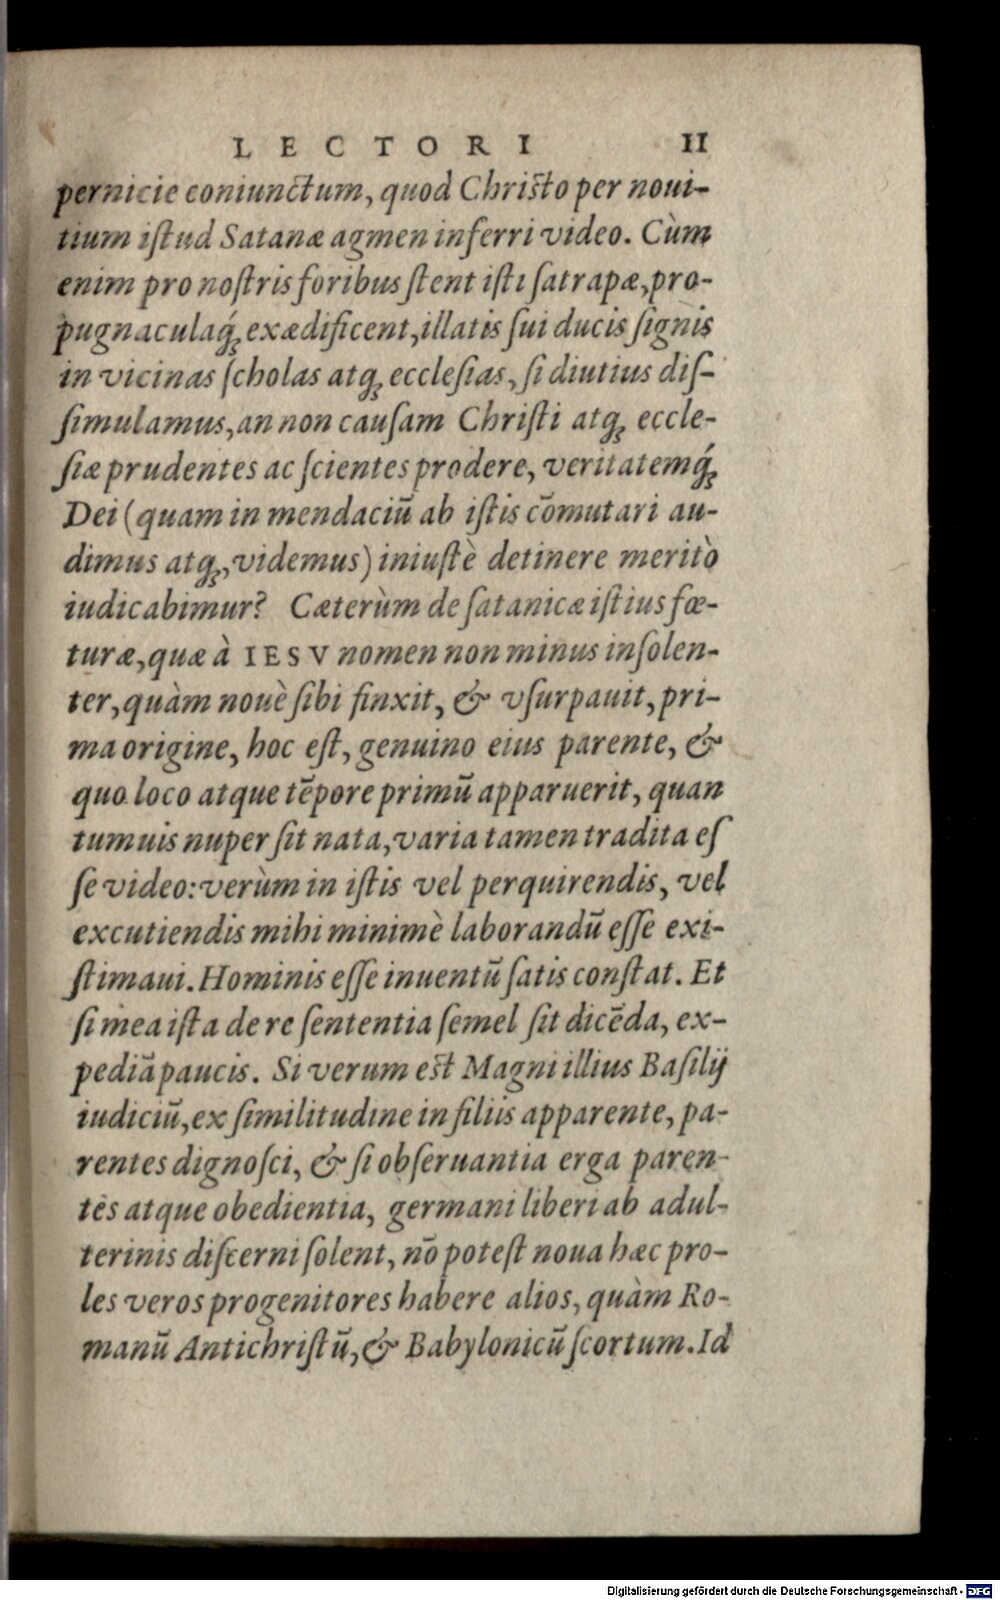 LECTORI 11
pernicie coniunctum, quod Christo per noui-
tium iſtud Satanæ agmen inferri video. Cùm
enim pro noſtris foribus ſtent iſti ſatrapæ, pro-
pugnaculaq́ꝫ exædificent, illatis ſui ducis ſignis
in vicinas ſcholas atqꝫ eccleſias, ſi diutius diſ-
ſimulamus, an non cauſam Chriſti atqꝫ eccle-
ſiæ prudentes ac ſcientes prodere, veritatemq́ꝫ
Dei (quam in mendaciū ab iſtis cōmutari au-
dimus atqꝫ, videmus) iniuſtè detinere meritò
iudicabimur? Cæterùm de ſatanicæ iſtius fœ-
turæ, quæ à IESV nomen non minus inſolen-
ter, quàm nouè ſibi finxit, & vſurpauit, pri-
ma origine, hoc eſt, genuino eius parente, &
quo loco atque tēpore primū apparuerit, quan
tumuis nuper ſit nata, varia tamen tradita eſ
ſe video: verùm in iſtis vel perquirendis, vel
excutiendis mihi minimè laborandū eſſe exi-
ſtimaui. Hominis eſſe inuentū ſatis conſtat. Et
ſi mea iſta de re ſententia ſemel ſit dicēda, ex-
pediā paucis. Si verum est Magni illius Baſilij
iudiciū, ex ſimilitudine in filiis apparente, pa-
rentes dignoſci, & ſi obſeruantia erga paren-
tes atque obedientia, germani liberi ab adul-
terinis diſcerni ſolent, nō poteſt noua hæc pro-
les veros progenitores habere alios, quàm Ro-
manū Antichriſtū, & Babylonicū ſcortum. Id
Digitalisierung gefördert durch die Deutsche Forschungsgemeinschaft - DFG